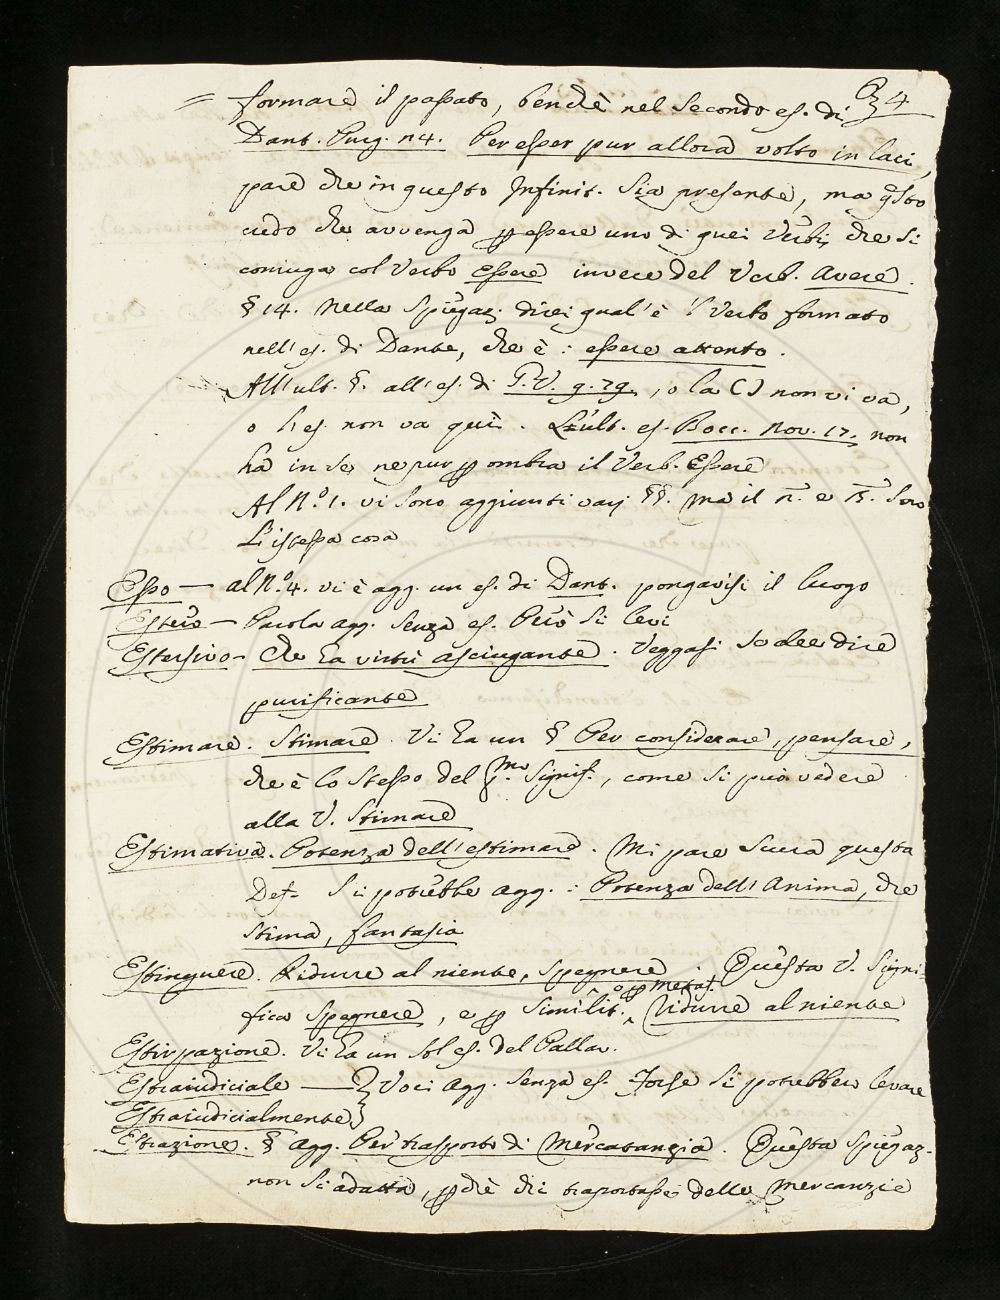 = formare il passato, benchè nel secondo es. di
Dant. Purg. n4. Per esser pur allora volto in laci,
pare che in questo Infinit. sia presente, ma qsto
credo che avvenga p essere uno di quei Verbi, che si
coniuga col Verbo Essere invece del Verb. Avere.
§ 14. Nella Spiegaz. direi qual'è 'l Verbo formato
nell'es. di Dante, che è: essere attento.
All'ult. §. all'es. di G.V. 9.79., o la CJ non vi va,
o l'es. non va quì. L'ult. es. Bocc. Nov. 17. non
ha in se nepur p ombra il Verb. Essere
Al N.° 1. vi sono aggiunti varj §§. ma il n. e n. sono
L'istessa cosa
Esso — al N.° 4. vi è agg. un es. di Dant. pongavisi il luogo
Estero — Parola agg. senza es. Però si levi
Estersivo — Che ha virtù asciugante. Veggasi se dee dire
purificante
Estimare. Stimare. Vi ha un § Per considerare, pensare,
che è lo stesso del p.mo signif., come si può vedere
alla V. Stimare
Estimativa. Potenza dell'estimare. Mi pare scura questa
Def. Si potrebbe agg.: Potenza dell'Anima, che
stima, fantasia
Estinguere. Ridurre al niente, spegnere. Questa V. signi-
fica spegnere, e p similit. o p metaf. Ridurre al niente
Estirpazione. Vi ha un sol es. del Pallav.
Estraiudiciale — } Voci agg. senza es. Forse si potrebber levare
Estraiudicialmente }
Estrazione. § agg. Per trasporto di Mercatanzia. Questa spiegaz.
non si adatta, pchè di trasportasse delle mercanzie